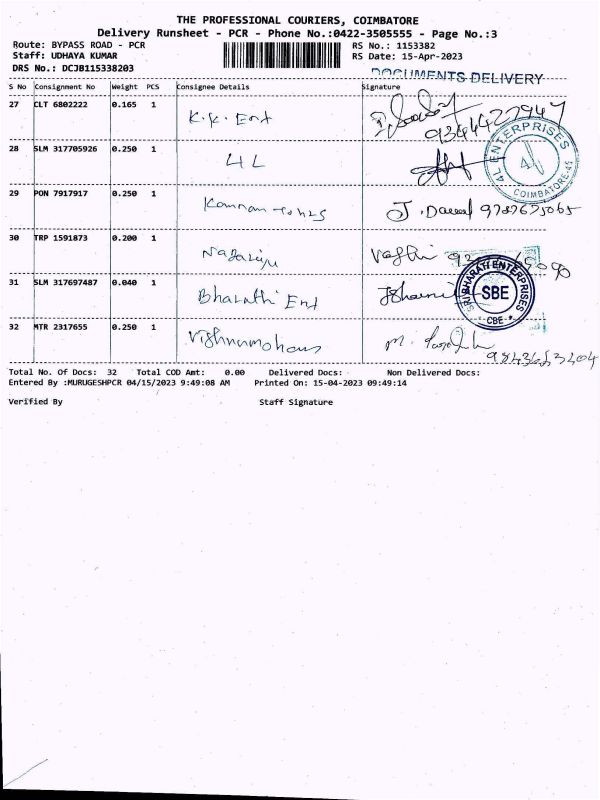 THE PROFESSIONAL COURIERS, COIMBATORE
Delivery Runsheet - PCR - Phone No.:0422-3505555 - Page No.:3
Route: BYPASS ROAD - PCR
RS No.: 1153382
Staff: UDHAYA KUMAR
RS Date: 15-Apr-2023
DRS No.: DCJB115338203
DOCUMENTS DELIVERY
S No Consignment No Weight PCS Consignee Details Signature
27 CLT 6802222 0.165 1 K.K. Ent
28 SLM 317705926 0.250 1 4L
4L ENTERPRISES
4L
COIMBATORE-45
29 PON 7917917 0.250 1 Kannan
30 TRP 1591873 0.200 1
31 SLM 317697487 0.040 1 Bharathi Ent
SRI BHARATI ENTERPRISES
SBE
* CBE *
32 MTR 2317655 0.250 1 Vishnumohan
Total No. Of Docs: 32 Total COD Amt: 0.00 Delivered Docs: Non Delivered Docs:
Entered By :MURUGESHPCR 04/15/2023 9:49:08 AM Printed On: 15-04-2023 09:49:14
Verified By Staff Signature